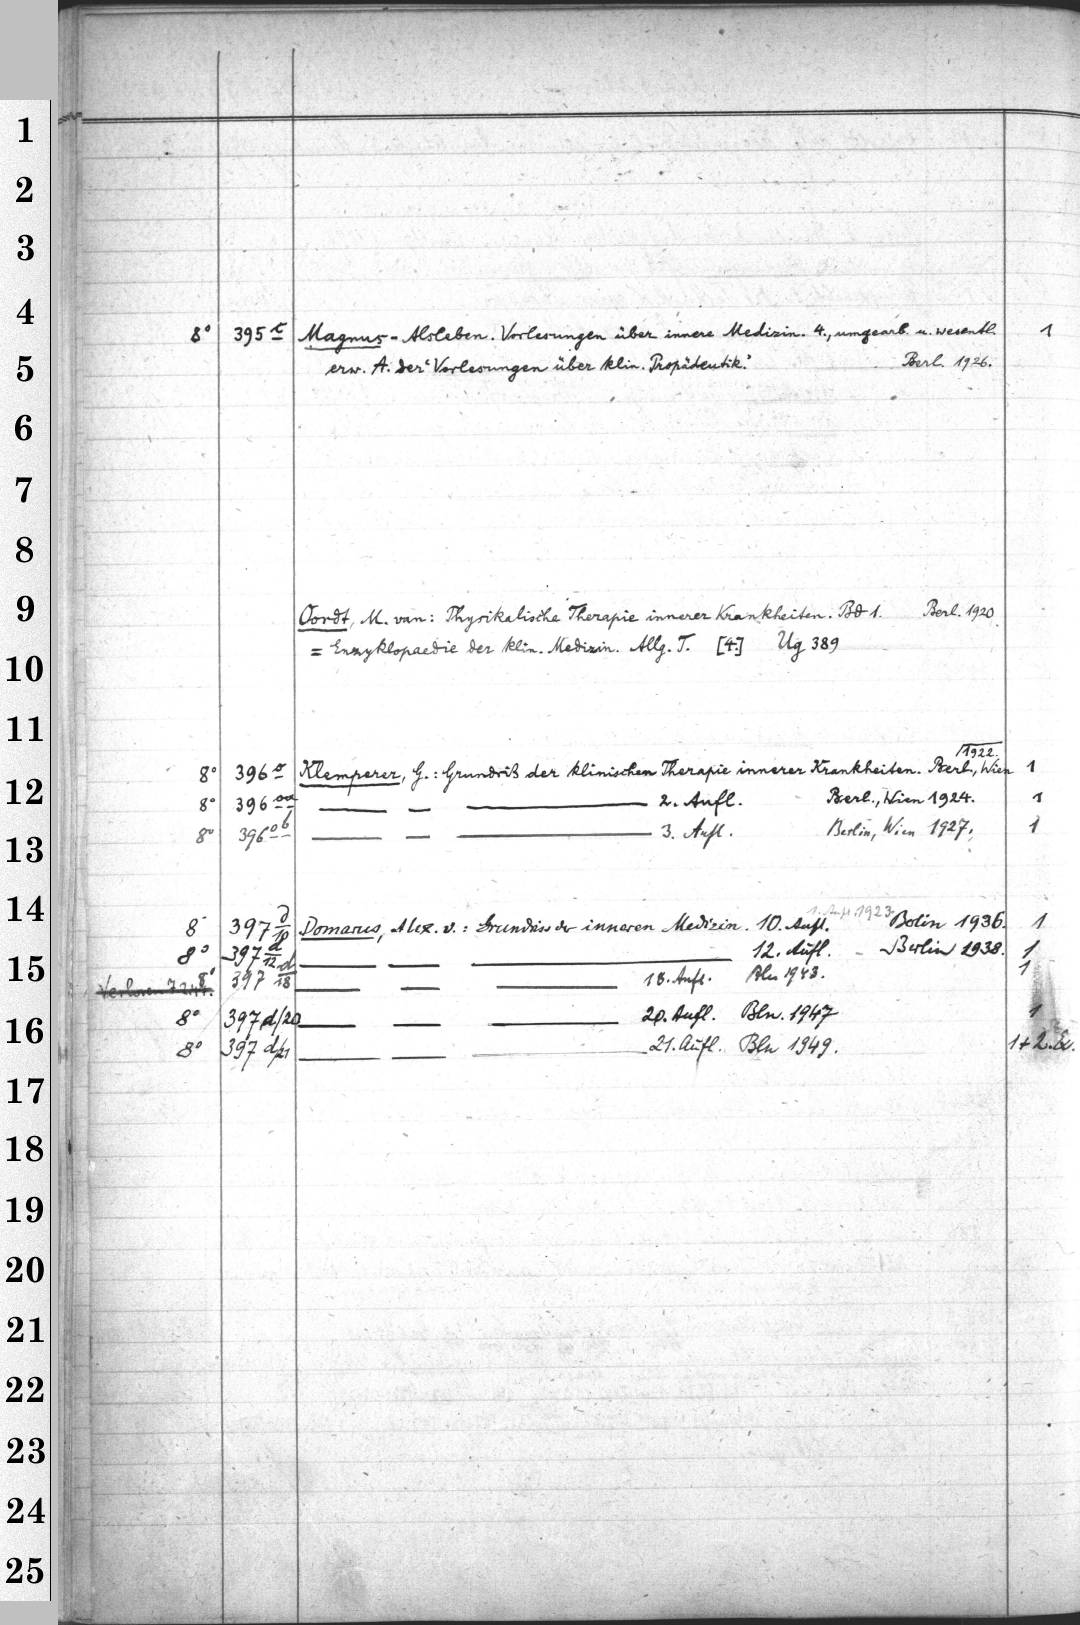 1
2
3
4
8° 395 c Magnus-Alsleben. Vorlesungen über innere Medizin. 4., umgearb. u. wesentl. 1
5
erw. A. der "Vorlesungen über klin. Propädeutik." Berl. 1926.
6
7
8
9
Oordt, M. van: Physikalische Therapie innerer Krankheiten. Bd 1. Berl. 1920.
= Enzyklopaedie der klin. Medizin. Allg. T. [4.] Ug 389
10
11
1922.
8° 396 a Klemperer, G.: Grundriß der klinischen Therapie innerer Krankheiten. Berl., Wien 1
12
8° 396 aa — — — 2. Aufl. Berl., Wien 1924. 1
8° 396 ab — — — 3. Aufl. Berlin, Wien 1927. 1
13
14
1. Aufl. 1923
8° 397 d/10 Domarus, Alex. v.: Grundriss der inneren Medizin. 10. Aufl. Berlin 1936. 1
8° 397 d/12 — — — 12. Aufl. Berlin 1938. 1
15
Verloren 8° 397 d/18 — — — 18. Aufl. Bln 1943. 1
16
8° 397 d/20 — — — 20. Aufl. Bln. 1947 1
8° 397 d/21 — — — 21. Aufl. Bln 1949. 1+2. Ex.
17
18
19
20
21
22
23
24
25